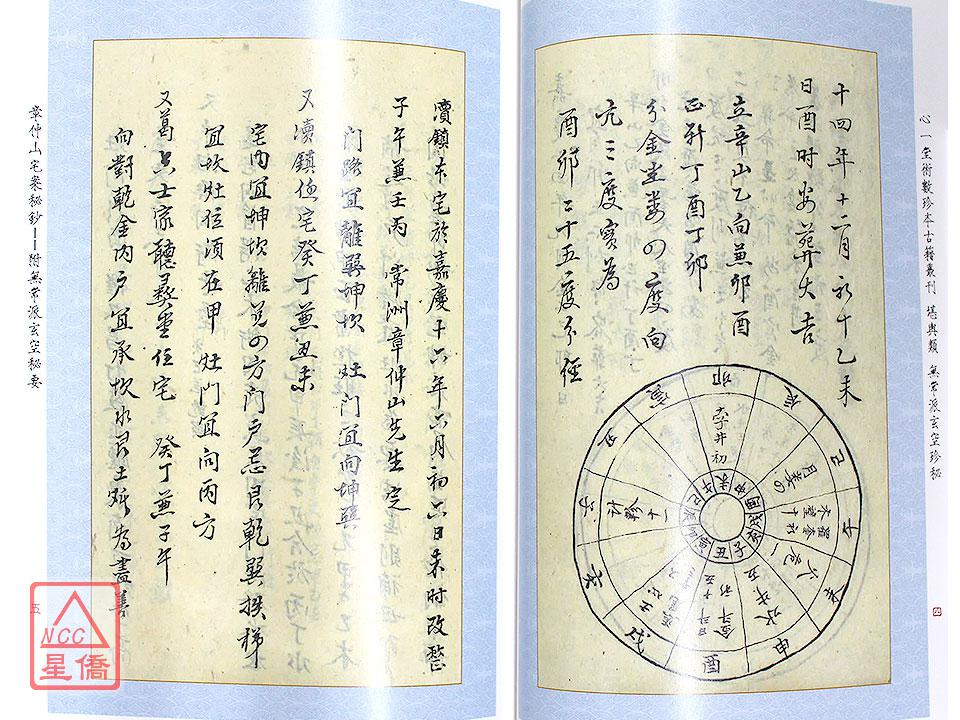 心一堂術數珍本古籍叢刊 堪輿類 無常派玄空珍秘
十四年十二月初十乙未
日酉時安葬大吉
立辛山乙向兼卯酉
正針丁酉丁卯
分金坐婁四度向
亢三度實為
酉卯二十五度分經
卯
辰
巳
午
未
申
酉
戌
亥
子
丑
寅
孛井初
月婁四
瀆鎮本宅於嘉慶十六年六月初六日未时改整
子午兼壬丙 常州章仲山先生定
门路宜離巽坤坎 灶门宜向坤巽
又瀆鎮住宅癸丁兼丑未
宅内宜坤坎離兌四方門戶忌艮乾巽
宜坎灶位須在甲 灶门宜向丙方
又葛 士家聽彝堂住宅 癸丁兼子午
向對乾金内户宜承坎水艮土 為盡善
章仲山宅案秘鈔——附無常派玄空秘要
五
NCC
星僑